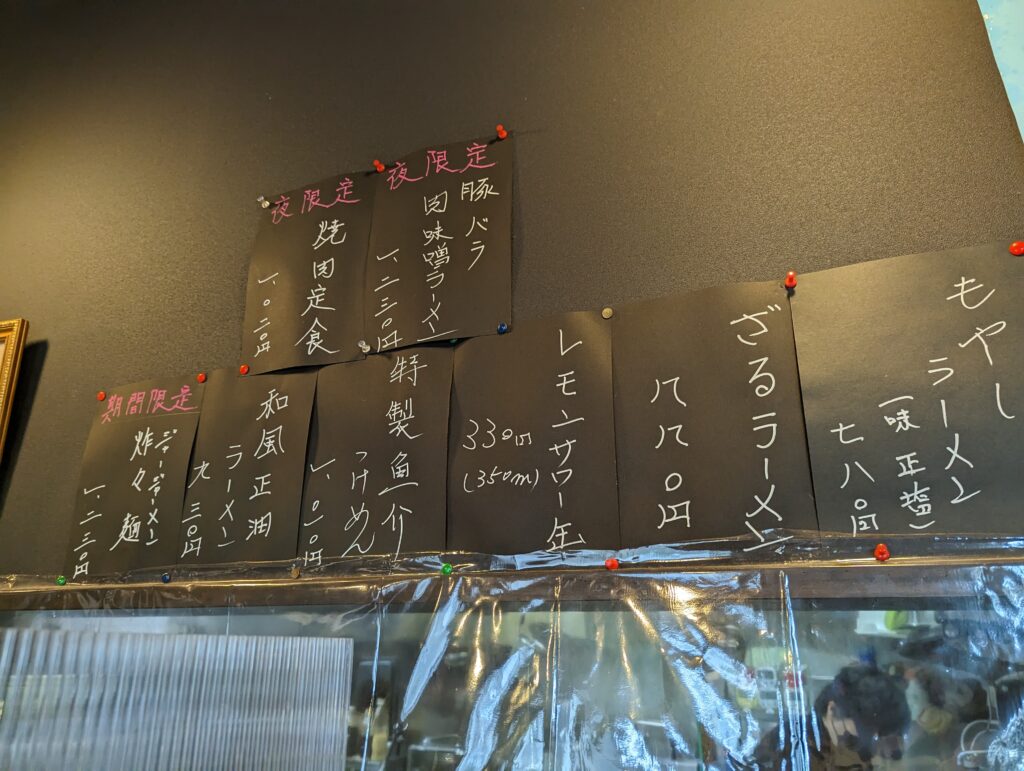 夜限定
豚バラ
肉味噌ラーメン
一、二三〇円
夜限定
焼肉定食
一、〇二〇円
もやし
ラーメン
七八〇円
ざるラーメン
八八〇円
レモンサワー缶
330円
(350ml)
特製魚介
つけめん
一、〇一〇円
和風正油
ラーメン
九三〇円
期間限定
ジャージャーメン
炸々麺
一、二三〇円